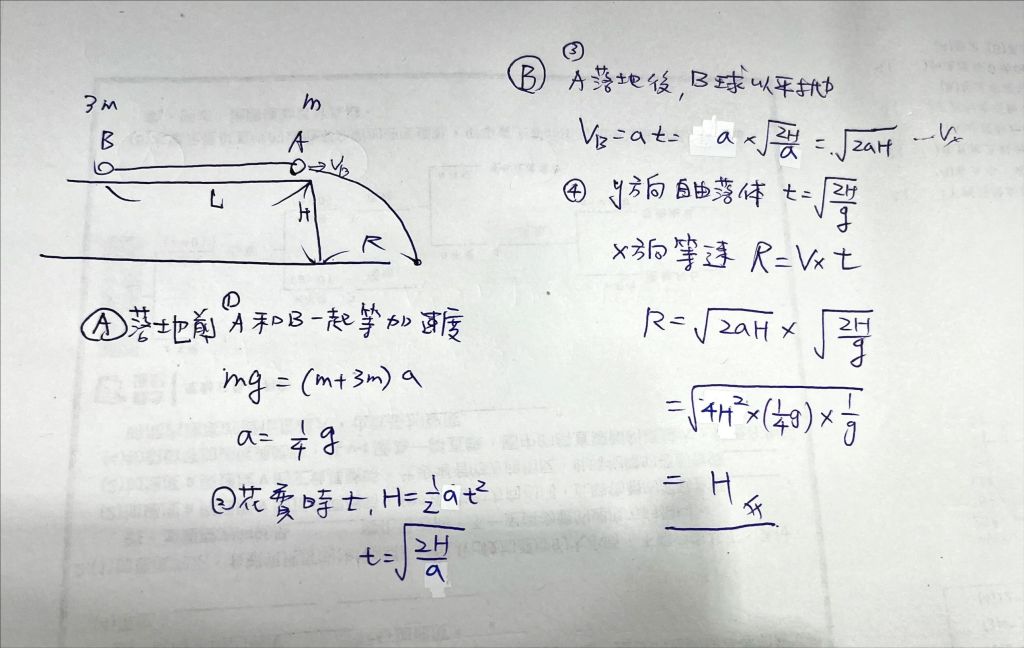 3m
m
B
A
V_B
L
H
R
Ⓐ 落地前 ① A和B一起等加速度
mg = (m+3m) a
a = 1/4 g
② 花費時 t, H = 1/2 at²
t = √(2H/a)
Ⓑ ③ A落地後, B球以平拋
V_B = at = a × √(2H/a) = √(2aH) — Vx
④ y方向自由落体 t = √(2H/g)
x方向等速 R = Vx t
R = √(2aH) × √(2H/g)
= √(4H² × (1/4 g) × 1/g)
= H